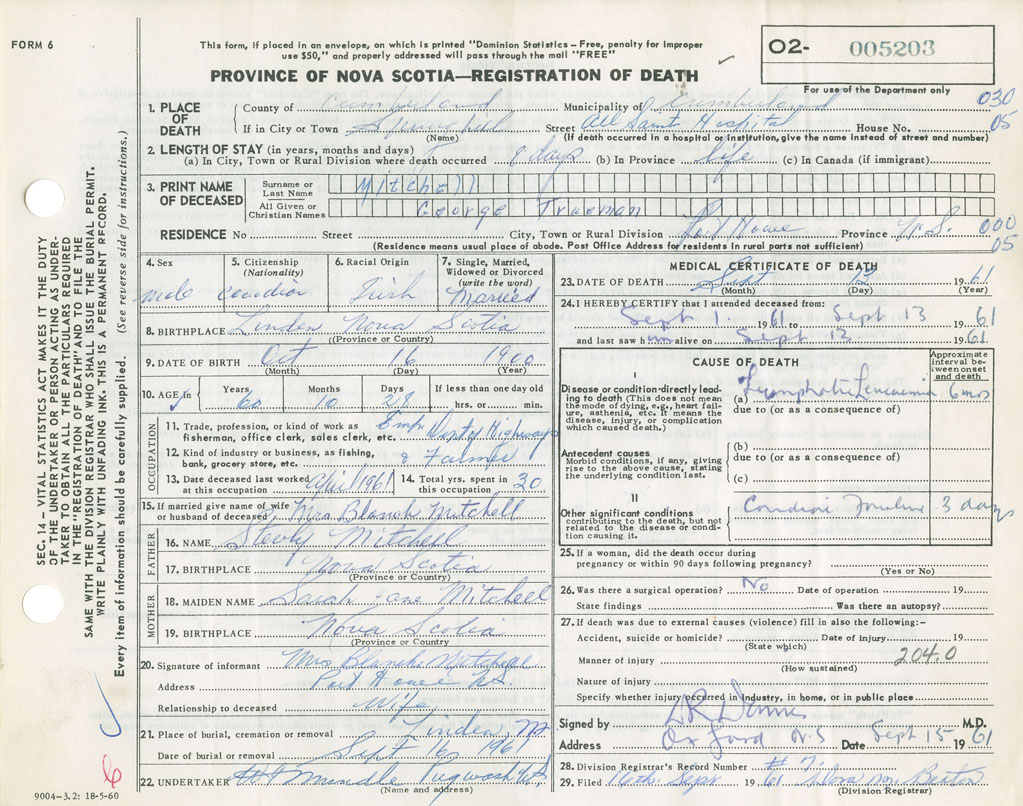 FORM 6
This form, if placed in an envelope, on which is printed "Dominion Statistics – Free, penalty for improper
use $50," and properly addressed will pass through the mail "FREE"
O2- 005203
PROVINCE OF NOVA SCOTIA—REGISTRATION OF DEATH
For use of the Department only
1. PLACE OF DEATH
County of Cumberland Municipality of Cumberland 030
If in City or Town Springhill Street All Saints Hospital House No. 05
(Name) (If death occurred in a hospital or institution, give the name instead of street and number)
2. LENGTH OF STAY (in years, months and days)
(a) In City, Town or Rural Division where death occurred 8 days (b) In Province life (c) In Canada (if immigrant)
3. PRINT NAME OF DECEASED
Surname or Last Name Mitchell
All Given or Christian Names George Trueman
RESIDENCE No Street City, Town or Rural Division Port Howe Province N.S. 000
(Residence means usual place of abode. Post Office Address for residents in rural parts not sufficient) 05
4. Sex male
5. Citizenship (Nationality) Canadian
6. Racial Origin Irish
7. Single, Married, Widowed or Divorced (write the word) Married
8. BIRTHPLACE Linden Nova Scotia
(Province or Country)
9. DATE OF BIRTH Oct 16 1900
(Month) (Day) (Year)
10. AGE in Years 60 Months 10 Days 28 If less than one day old hrs. or min.
OCCUPATION
11. Trade, profession, or kind of work as fisherman, office clerk, sales clerk, etc. Emp Dept Highways
12. Kind of industry or business, as fishing, bank, grocery store, etc. & Farmer
13. Date deceased last worked at this occupation April 1961
14. Total yrs. spent in this occupation 30
15. If married give name of wife or husband of deceased Mrs Blanch Mitchell
FATHER
16. NAME Mitchell
17. BIRTHPLACE Nova Scotia
(Province or Country)
MOTHER
18. MAIDEN NAME Sarah Jane Mitchell
19. BIRTHPLACE Nova Scotia
(Province or Country)
20. Signature of informant Mrs Blanche Mitchell
Address Port Howe N.S.
Relationship to deceased Wife
21. Place of burial, cremation or removal Linden,
Date of burial or removal Sept 16 1961
22. UNDERTAKER Pugwash N.S.
(Name and address)
MEDICAL CERTIFICATE OF DEATH
23. DATE OF DEATH Sept 13 1961
(Month) (Day) (Year)
24. I HEREBY CERTIFY that I attended deceased from:
Sept 1. 1961 to Sept 13 1961
and last saw him alive on Sept 13. 1961
CAUSE OF DEATH
Approximate interval between onset and death
I
Disease or condition directly leading to death (This does not mean the mode of dying, e.g., heart failure, asthenia, etc. It means the disease, injury, or complication which caused death.)
(a) Lymphatic Leucaemia 6 mos
due to (or as a consequence of)
Antecedent causes
Morbid conditions, if any, giving rise to the above cause, stating the underlying condition last.
(b)
due to (or as a consequence of)
(c)
II
Other significant conditions contributing to the death, but not related to the disease or condition causing it.
3 days
25. If a woman, did the death occur during
pregnancy or within 90 days following pregnancy?
(Yes or No)
26. Was there a surgical operation? No Date of operation 19
State findings Was there an autopsy?
27. If death was due to external causes (violence) fill in also the following:-
Accident, suicide or homicide? Date of injury 19
(State which)
Manner of injury 204.0
(How sustained)
Nature of injury
Specify whether injury occurred in industry, in home, or in public place
Signed by M.D.
Address Oxford N.S Date Sept 15 1961
28. Division Registrar's Record Number # 7
29. Filed 16th Sept 1961
(Division Registrar)
SEC. 14 – VITAL STATISTICS ACT MAKES IT THE DUTY
OF THE UNDERTAKER OR PERSON ACTING AS UNDER-
TAKER TO OBTAIN ALL THE PARTICULARS REQUIRED
IN THE "REGISTRATION OF DEATH" AND TO FILE THE
SAME WITH THE DIVISION REGISTRAR WHO SHALL ISSUE THE BURIAL PERMIT.
WRITE PLAINLY WITH UNFADING INK. THIS IS A PERMANENT RECORD.
Every item of information should be carefully supplied. (See reverse side for instructions.)
9004–3.2: 18-5-60